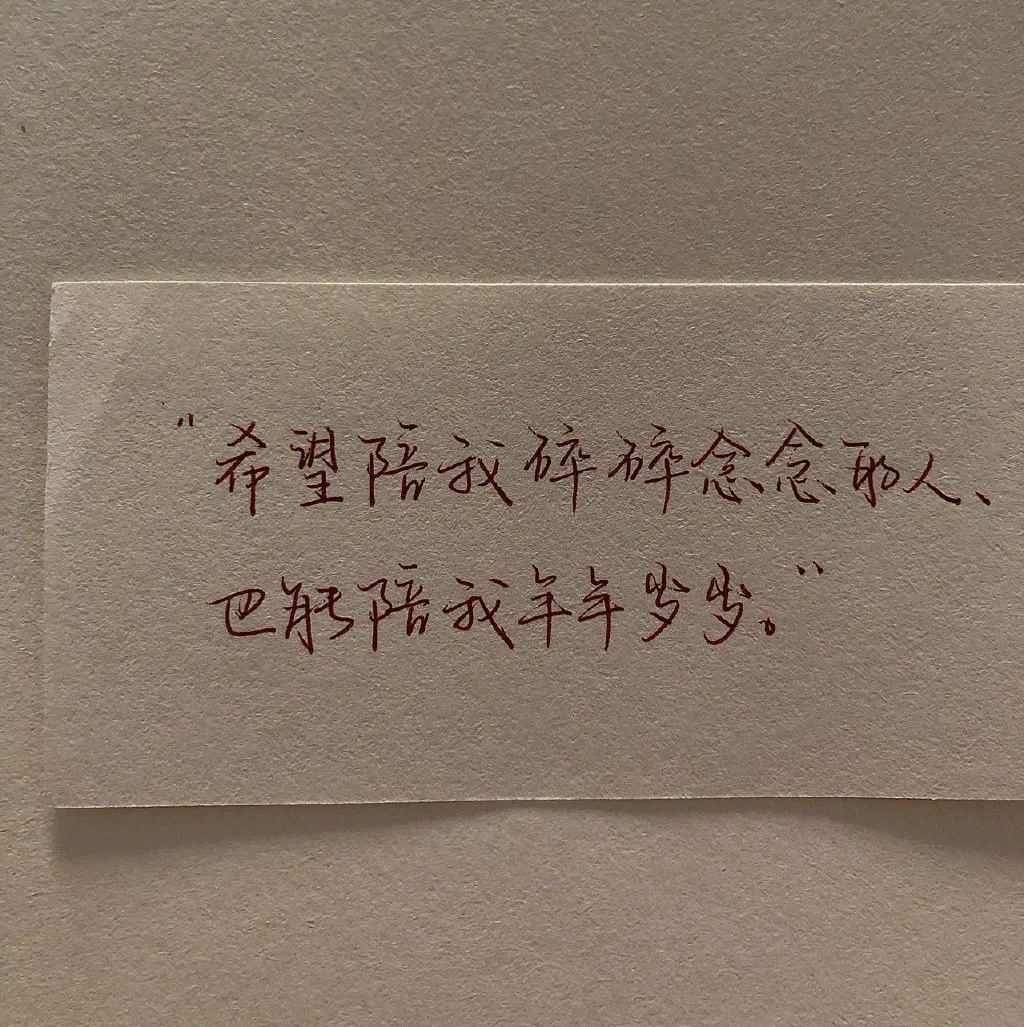 "希望陪我碎碎念念的人、
也能陪我年年岁岁。"